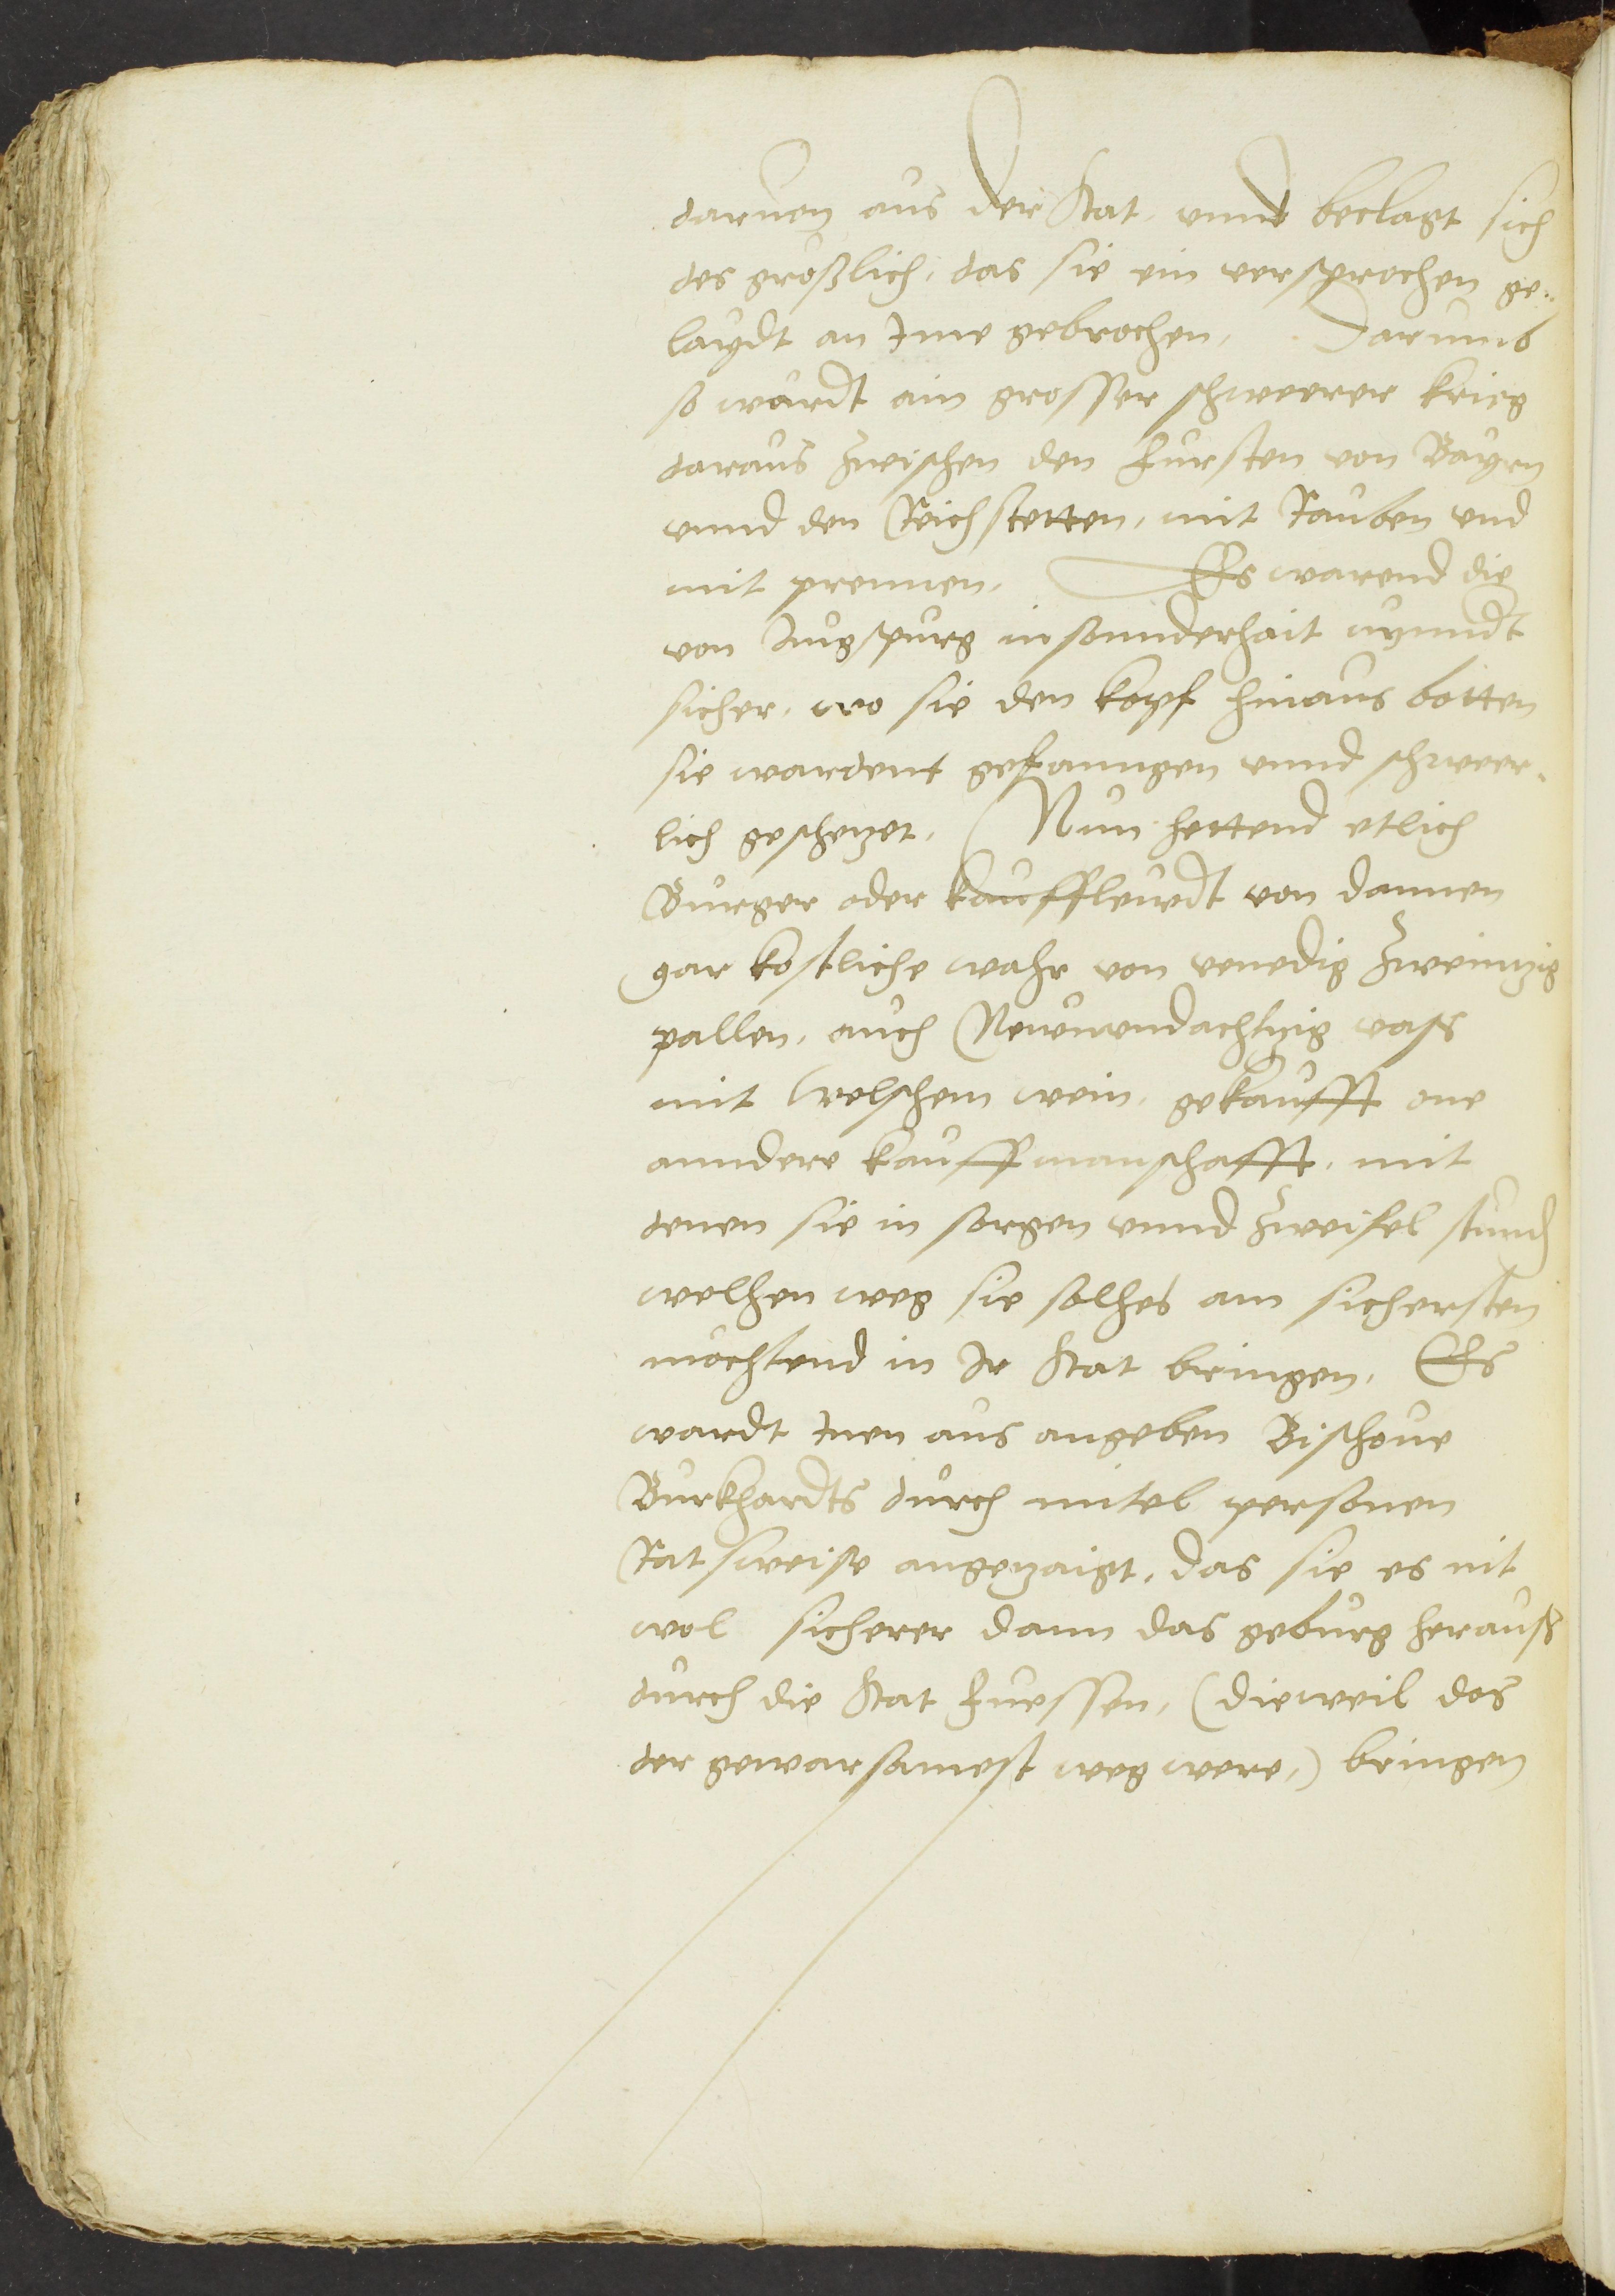 daruon aus der Stat, vnnd beclagt sich
des großlich, das sie ein versprochen ge¬
laydt an Jme gebrochen, Darumb
so wardt ain grosser schweerer krieg
daraus zwischen den fursten von Bayrn
vnnd den Reichstetten, mit Rauben vnd
mit prennen, Es warend die
von Augspurg in sonnderhait nyendt
sicher, wo sie den kopf hinaus botten
sie wardent gefanngen vnnd schweer¬
lich geschezet, Nun hettend etlich
Burger oder kauffleudt von dannen
gar kostliche wahr von venedig zweintzig
pallen, auch Neunvndachtzig vass
mit welschem wein, gekaufft one
anndere kauffmanschafft, mit
denen sie in sorgen vnnd zweifel stund
welhen weg sie solhes am sichersten
mochtend in Jr Stat bringen, Es
wardt Jnen aus angeben Bischoue
Burkhardts durch mitel personen
Ratsweise angezaigt, das sie es nit
wol sicherer dann das geburg herauss
durch die Stat fuessen, (dieweil das
der gewarsamest weg were,) bringen